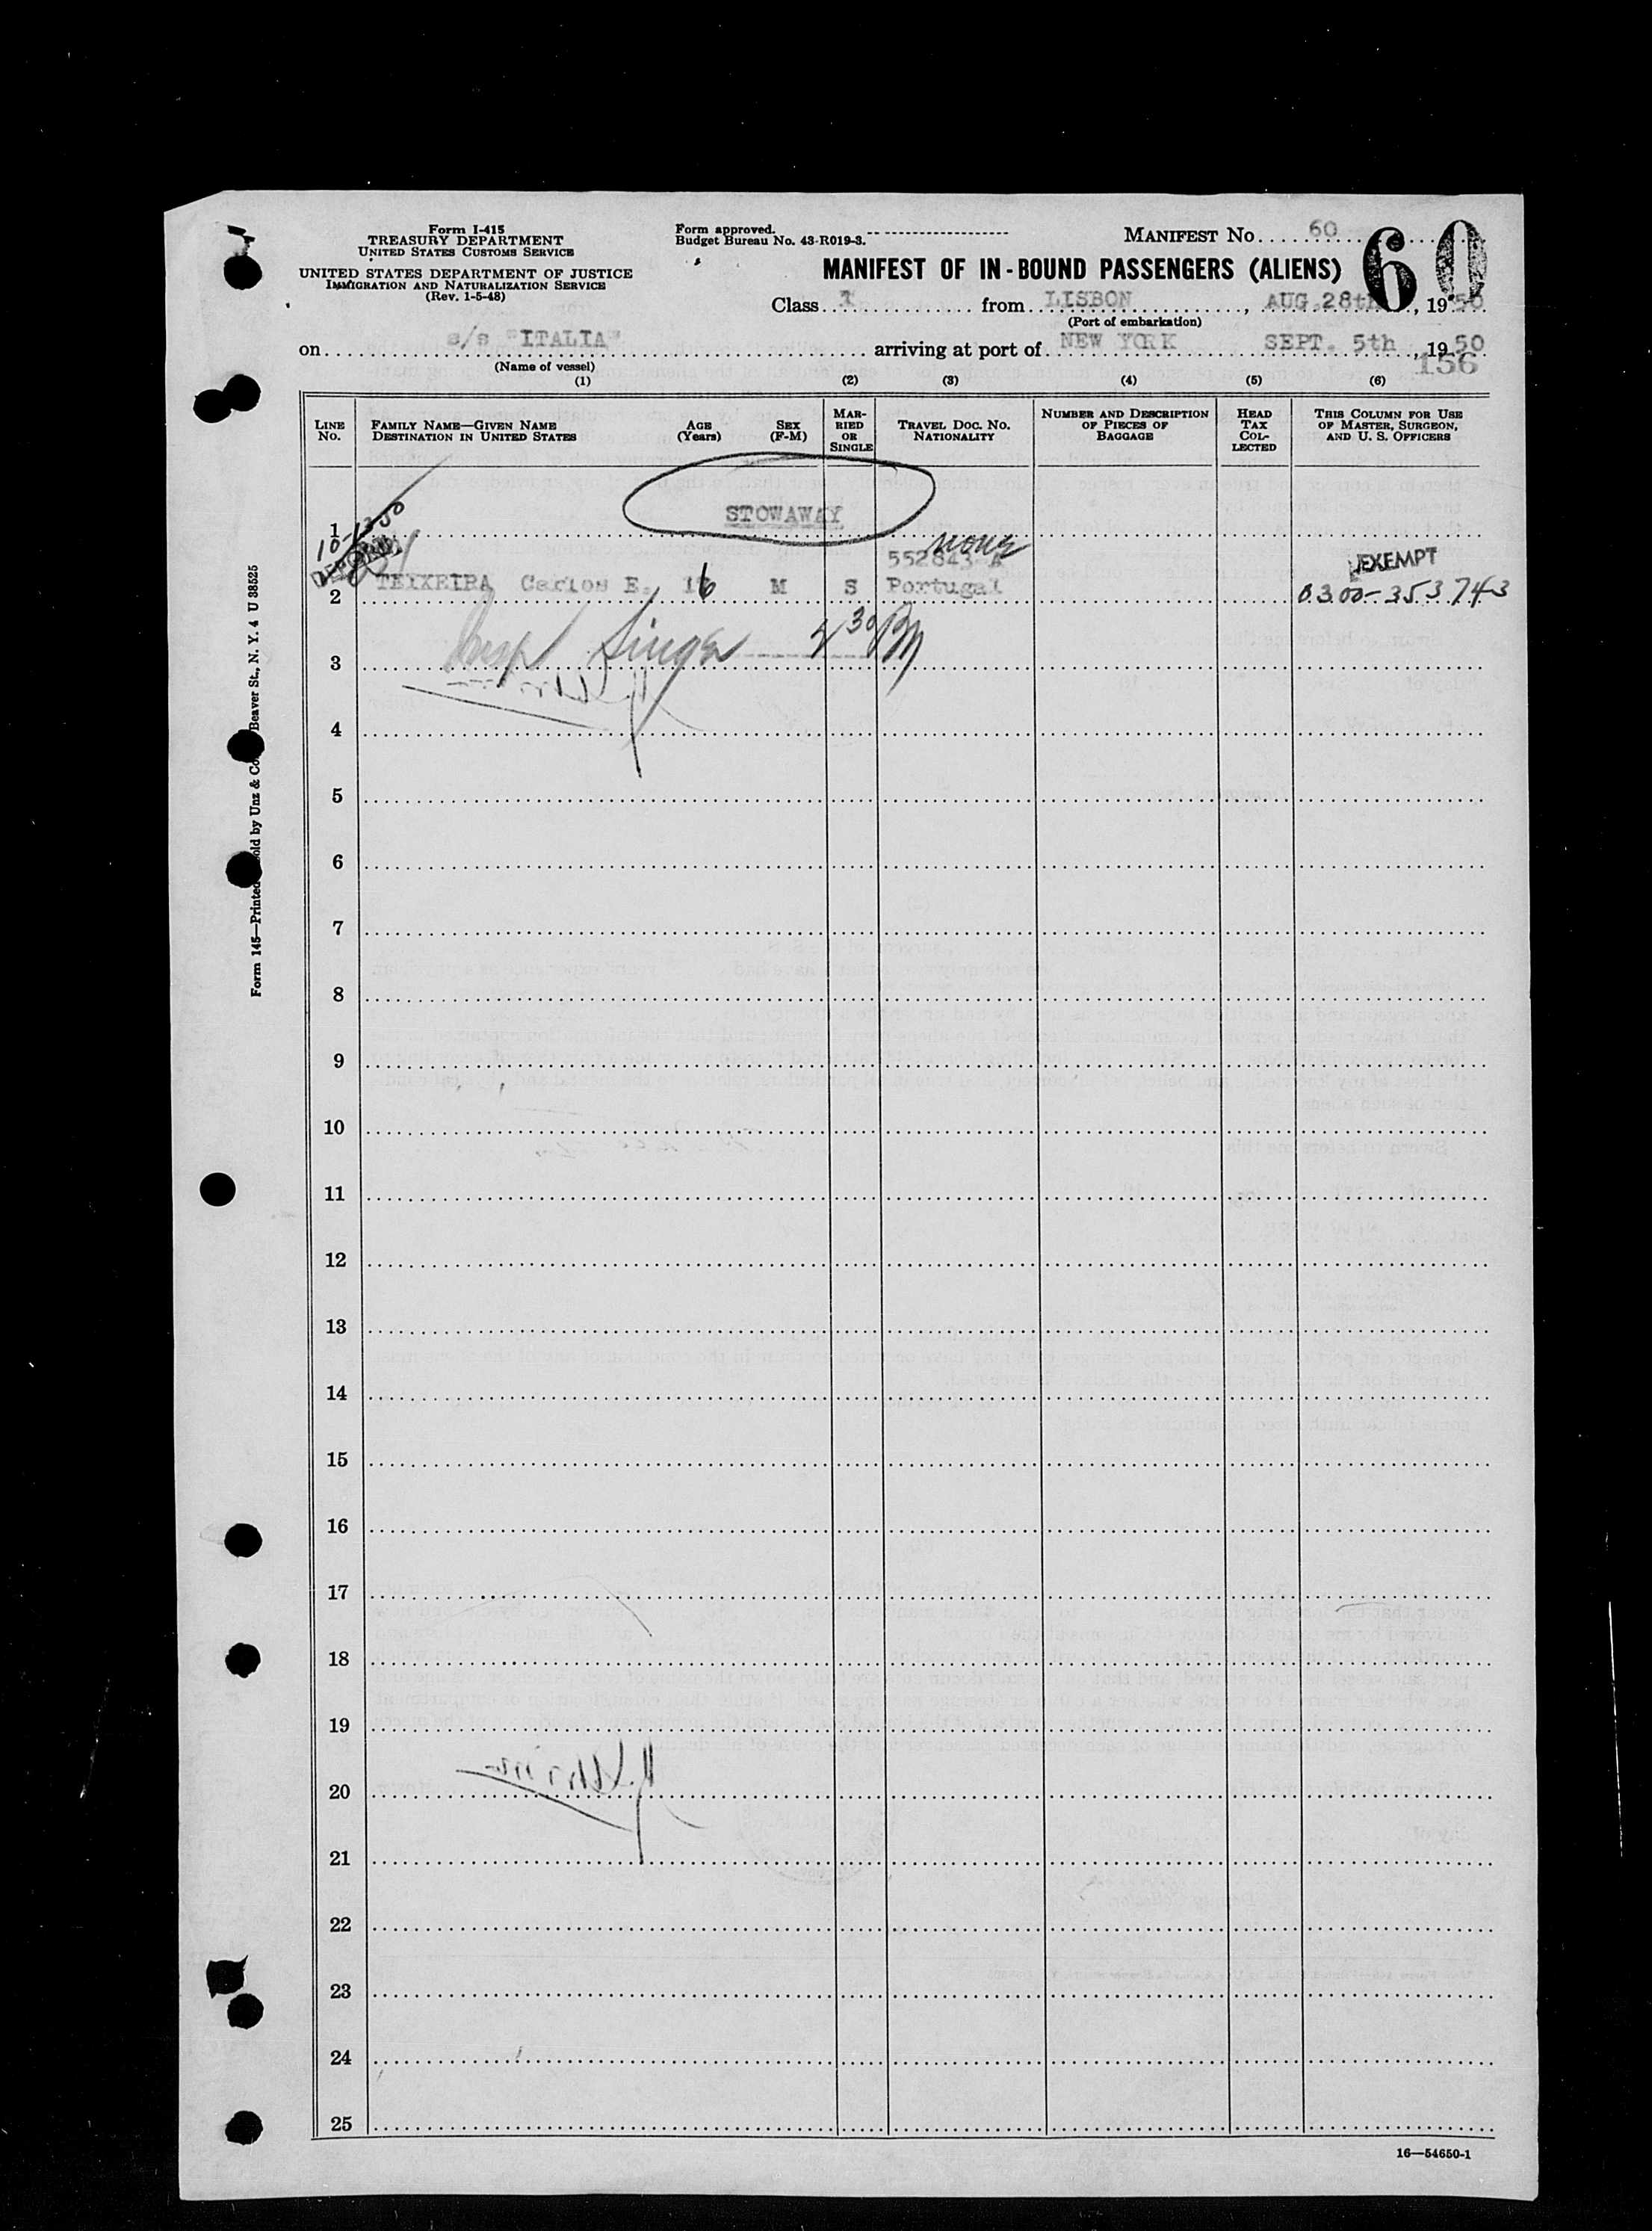 Form I-415
TREASURY DEPARTMENT
UNITED STATES CUSTOMS SERVICE
UNITED STATES DEPARTMENT OF JUSTICE
IMMIGRATION AND NATURALIZATION SERVICE
(Rev. 1-5-48)
Form approved.
Budget Bureau No. 43-R019-3.
MANIFEST No. 60
60
MANIFEST OF IN-BOUND PASSENGERS (ALIENS)
Class from LISBON, AUG. 28th, 1950
(Port of embarkation)
on s/s "ITALIA" arriving at port of NEW YORK SEPT. 5th, 1950
(Name of vessel)
156
(1) (2) (3) (4) (5) (6)
LINE No.
FAMILY NAME—GIVEN NAME
DESTINATION IN UNITED STATES
AGE (Years)
SEX (F-M)
MARRIED OR SINGLE
TRAVEL DOC. NO.
NATIONALITY
NUMBER AND DESCRIPTION OF PIECES OF BAGGAGE
HEAD TAX COLLECTED
THIS COLUMN FOR USE OF MASTER, SURGEON, AND U. S. OFFICERS
1 STOWAWAY
none
552843 A
EXEMPT
2 TEIXEIRA Carlos E. 16 M S Portugal 0300-353743
3 Insp Singer 4 30 PM
4
5
6
7
8
9
10
11
12
13
14
15
16
17
18
19
20
21
22
23
24
25
16—54650-1